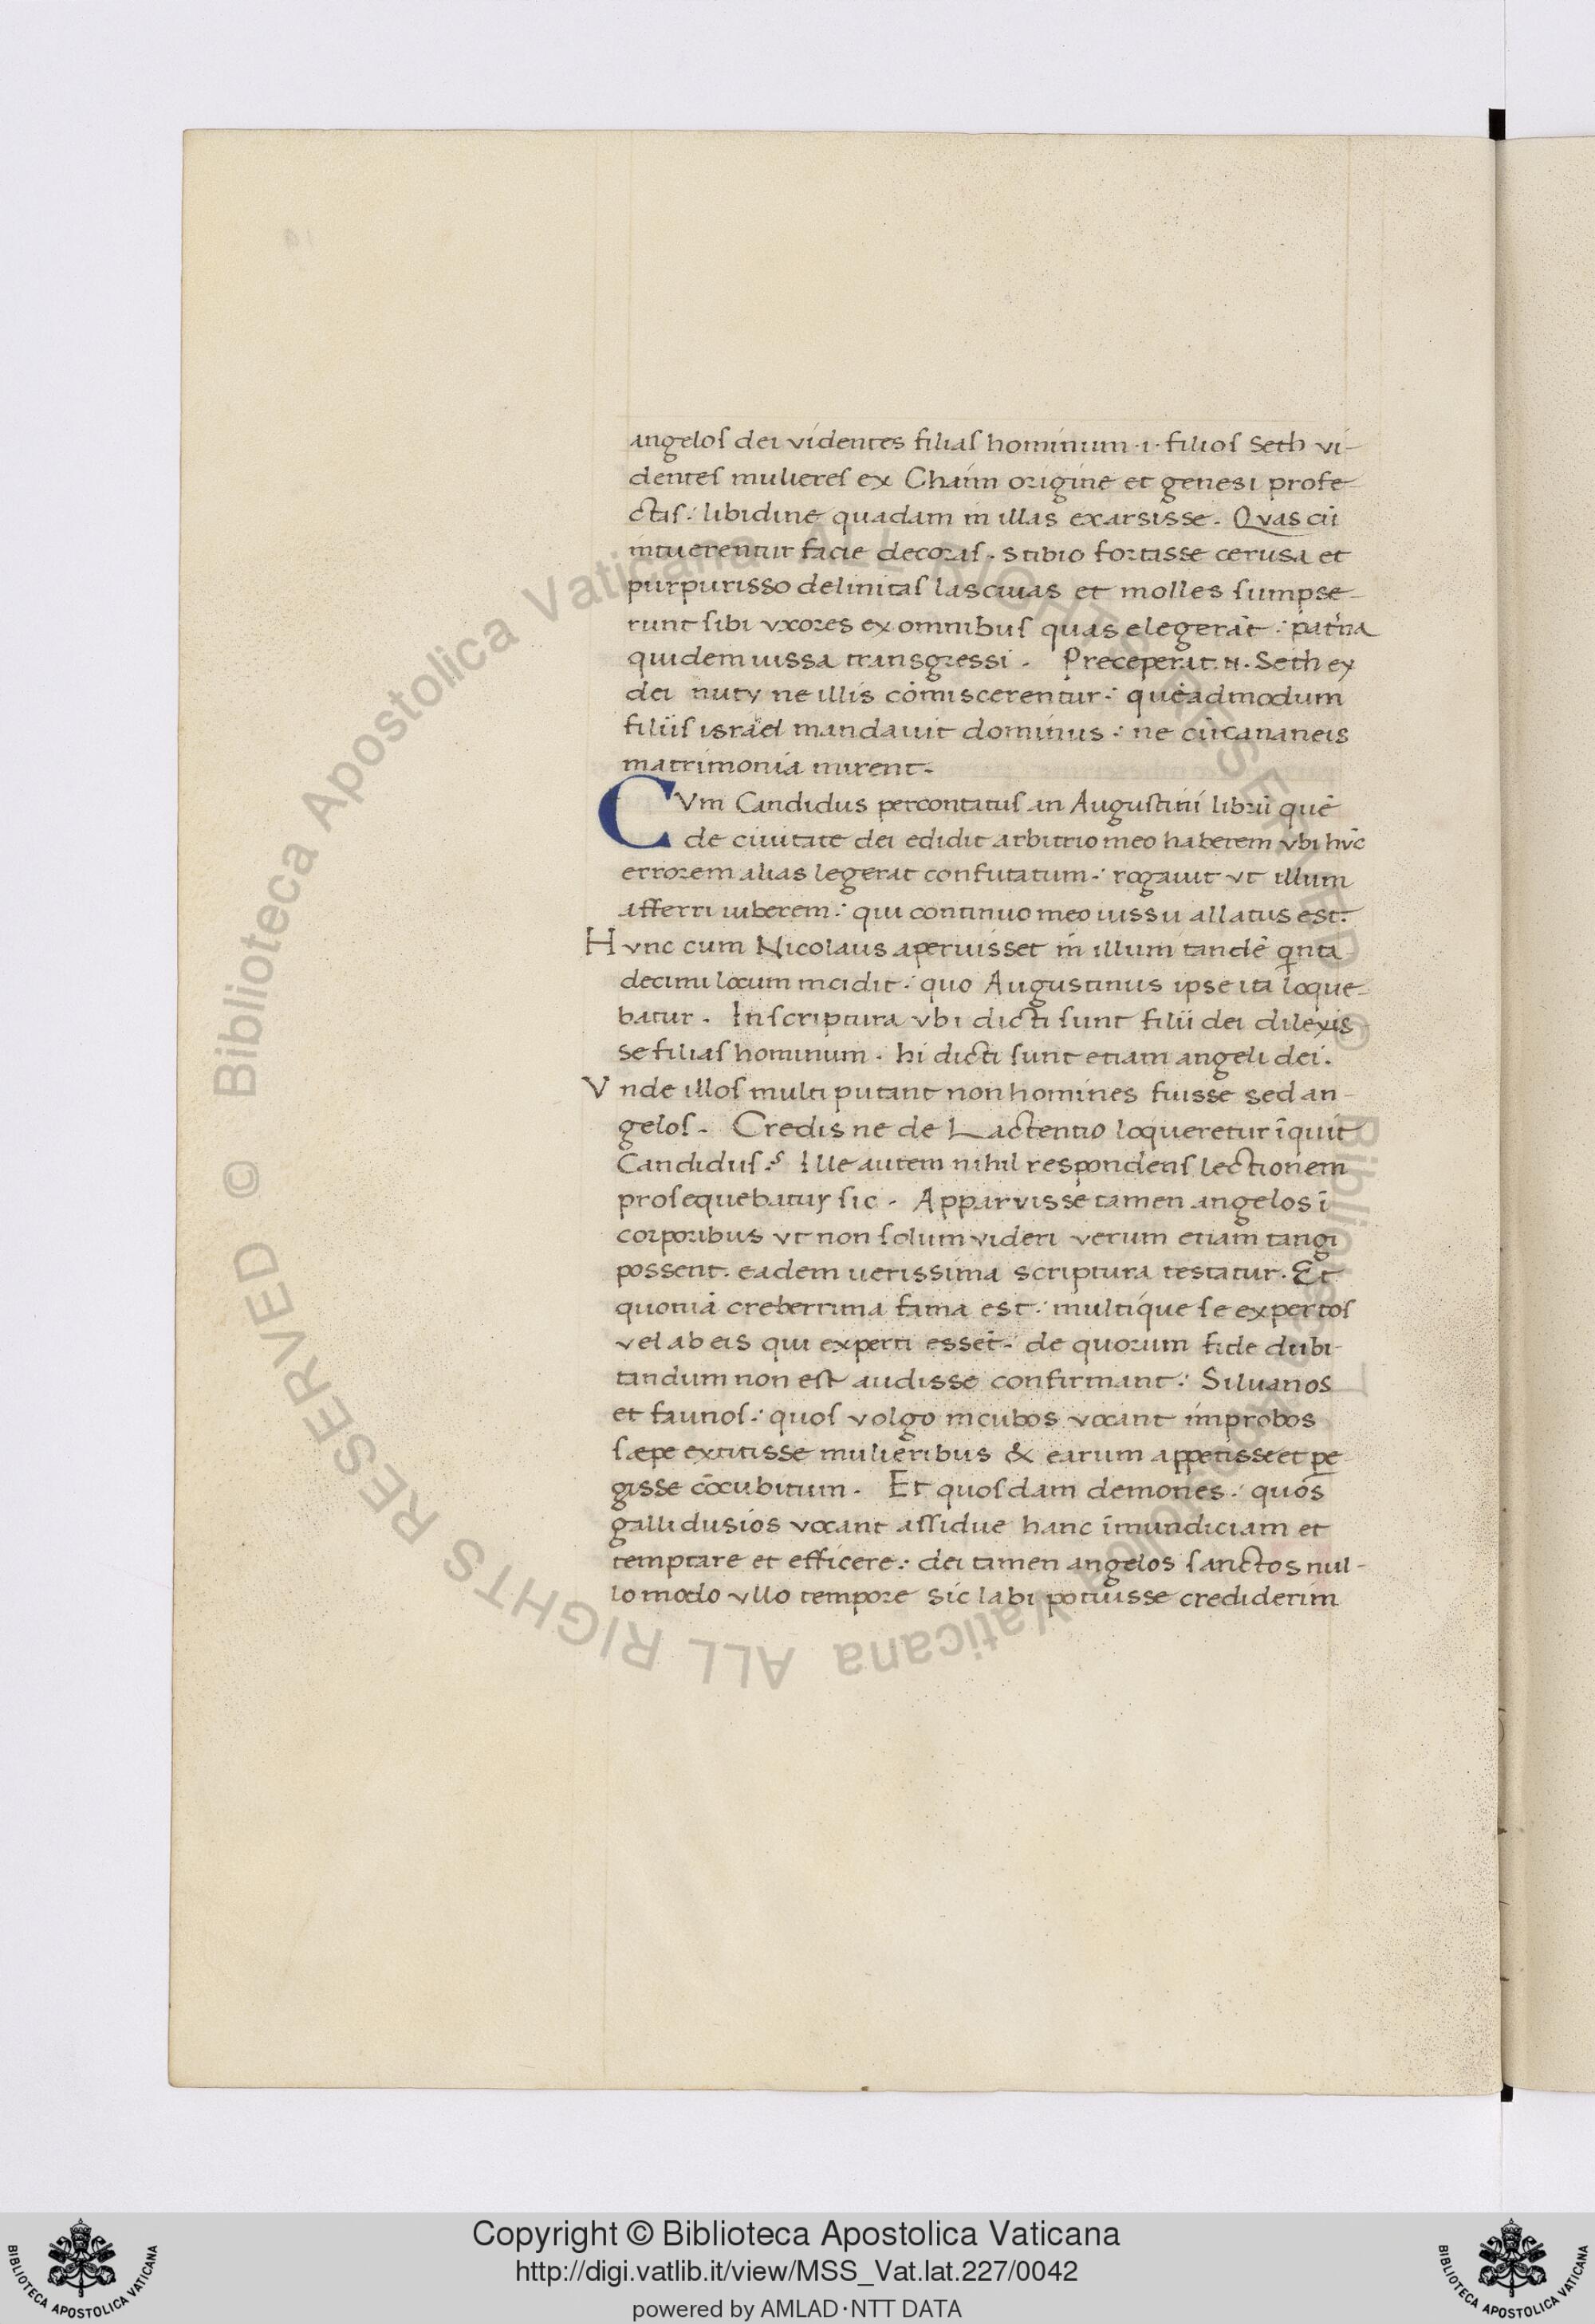 angelos dei videntes filias hominum .i. filios Seth vi-
dentes mulieres ex Chaim origine et genesi profe-
ctas: libidine quadam in illas exarsisse. Qvas cū
intuerentur facie decoras. stibio fortasse cerusa et
purpurisso delinitas lasciuas et molles sumpse-
runt sibi vxores ex omnibus quas elegerāt: pat'na
quidem iussa transgressi. Preceperat .n. Seth ex
dei nuty ne illis cōmiscerentur: quēadmodum
filiis israel mandauit dominus: ne cū cananeis
matrimonia inirent.
CVm Candidus percontatus an Augustini librū quē
de ciuitate dei edidit arbitrio meo haberem vbi hūc
errorem alias legerat confutatum: rogauit vt illum
afferri iuberem: qui continuo meo iussu allatus est.
Hvnc cum Nicolaus aperuisset in illum tandē qinta
decimi locum incidit: quo Augustinus ipse ita loque-
batur. In scriptura vbi dicti sunt filii dei dilexis-
se filias hominum. hi dicti sunt etiam angeli dei.
Vnde illos multi putant non homines fuisse sed an-
gelos. Credis ne de Lactentio loqueretur īquit
Candidus? Ille autem nihil respondens lectionem
prosequebatur sic. Apparvisse tamen angelos ī
corporibus vt non solum videri verum etiam tangi
possent. eadem uerissima scriptura testatur. Et
quoniā creberrima fama est: multique se expertos
vel ab eis qui experti essēt: de quorum fide dubi-
tandum non est audisse confirmant: Siluanos
et faunos: quos volgo incubos vocant improbos
sæpe extitisse mulieribus & earum appetisse et pe-
gisse cōcubitum. Et quosdam demones: quos
galli dusios vocant assidue hanc īmundiciam et
temptare et efficere: dei tamen angelos sanctos nul-
lo modo vllo tempore sic labi potuisse crediderim
© Biblioteca Apostolica Vaticana ALL RIGHTS RESERVED
© Biblioteca Apostolica Vaticana ALL RIGHTS RESERVED
Copyright © Biblioteca Apostolica Vaticana
http://digi.vatlib.it/view/MSS_Vat.lat.227/0042
powered by AMLAD·NTT DATA
BIBLIOTECA APOSTOLICA VATICANA
BIBLIOTECA APOSTOLICA VATICANA